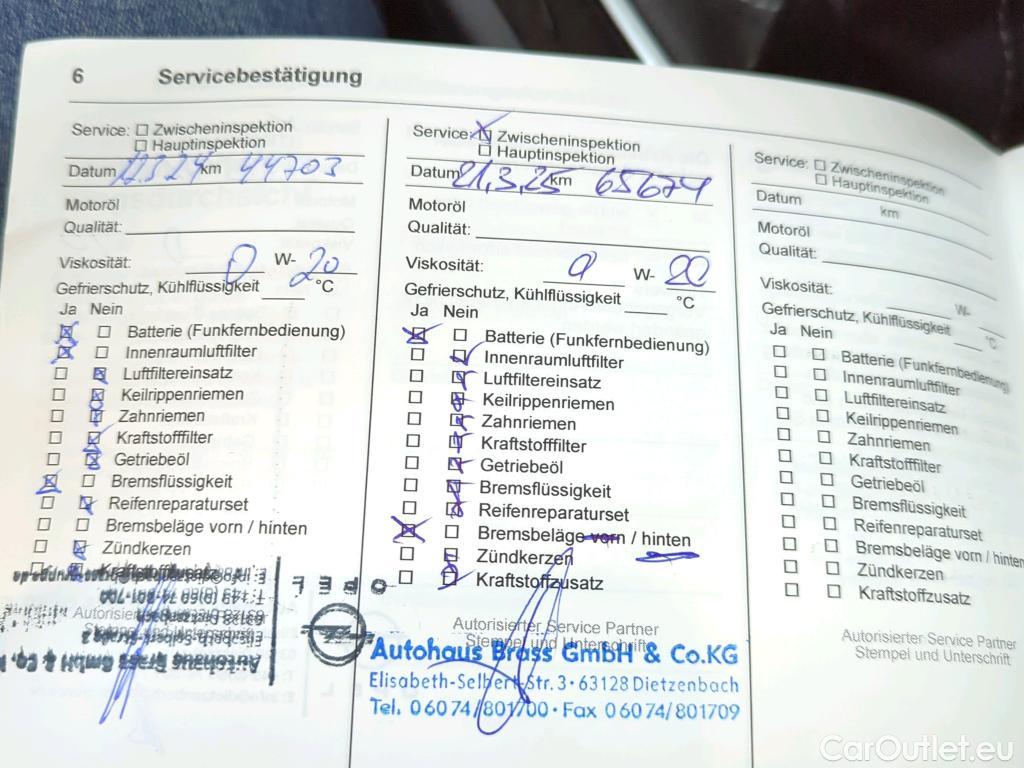 6 Servicebestätigung
Service: Zwischeninspektion
Hauptinspektion
Datum 12.3.24 km 44703
Motoröl
Qualität:
Viskosität: 0 W- 20
Gefrierschutz, Kühlflüssigkeit °C
Ja Nein
Batterie (Funkfernbedienung)
Innenraumluftfilter
Luftfiltereinsatz
Keilrippenriemen
Zahnriemen
Kraftstofffilter
Getriebeöl
Bremsflüssigkeit
Reifenreparaturset
Bremsbeläge vorn / hinten
Zündkerzen
Kraftstoffzusatz
Autorisierter Service Partner
Stempel und Unterschrift
OPEL
Autohaus Brass GmbH & Co.
Elisabeth-Selbert-Straße 3
63128 Dietzenbach
Service: Zwischeninspektion
Hauptinspektion
Datum 21,3,25 km 65674
Motoröl
Qualität:
Viskosität: 0 W- 20
Gefrierschutz, Kühlflüssigkeit °C
Ja Nein
Batterie (Funkfernbedienung)
Innenraumluftfilter
Luftfiltereinsatz
Keilrippenriemen
Zahnriemen
Kraftstofffilter
Getriebeöl
Bremsflüssigkeit
Reifenreparaturset
Bremsbeläge vorn / hinten
Zündkerzen
Kraftstoffzusatz
Autorisierter Service Partner
Stempel und Unterschrift
Autohaus Brass GmbH & Co.KG
Elisabeth-Selbert-Str. 3 · 63128 Dietzenbach
Tel. 06074/801700 · Fax 06074/801709
Service: Zwischeninspektion
Hauptinspektion
Datum km
Motoröl
Qualität:
Viskosität: W-
Gefrierschutz, Kühlflüssigkeit °C
Ja Nein
Batterie (Funkfernbedienung)
Innenraumluftfilter
Luftfiltereinsatz
Keilrippenriemen
Zahnriemen
Kraftstofffilter
Getriebeöl
Bremsflüssigkeit
Reifenreparaturset
Bremsbeläge vorn / hinten
Zündkerzen
Kraftstoffzusatz
Autorisierter Service Partner
Stempel und Unterschrift
CarOutlet.eu